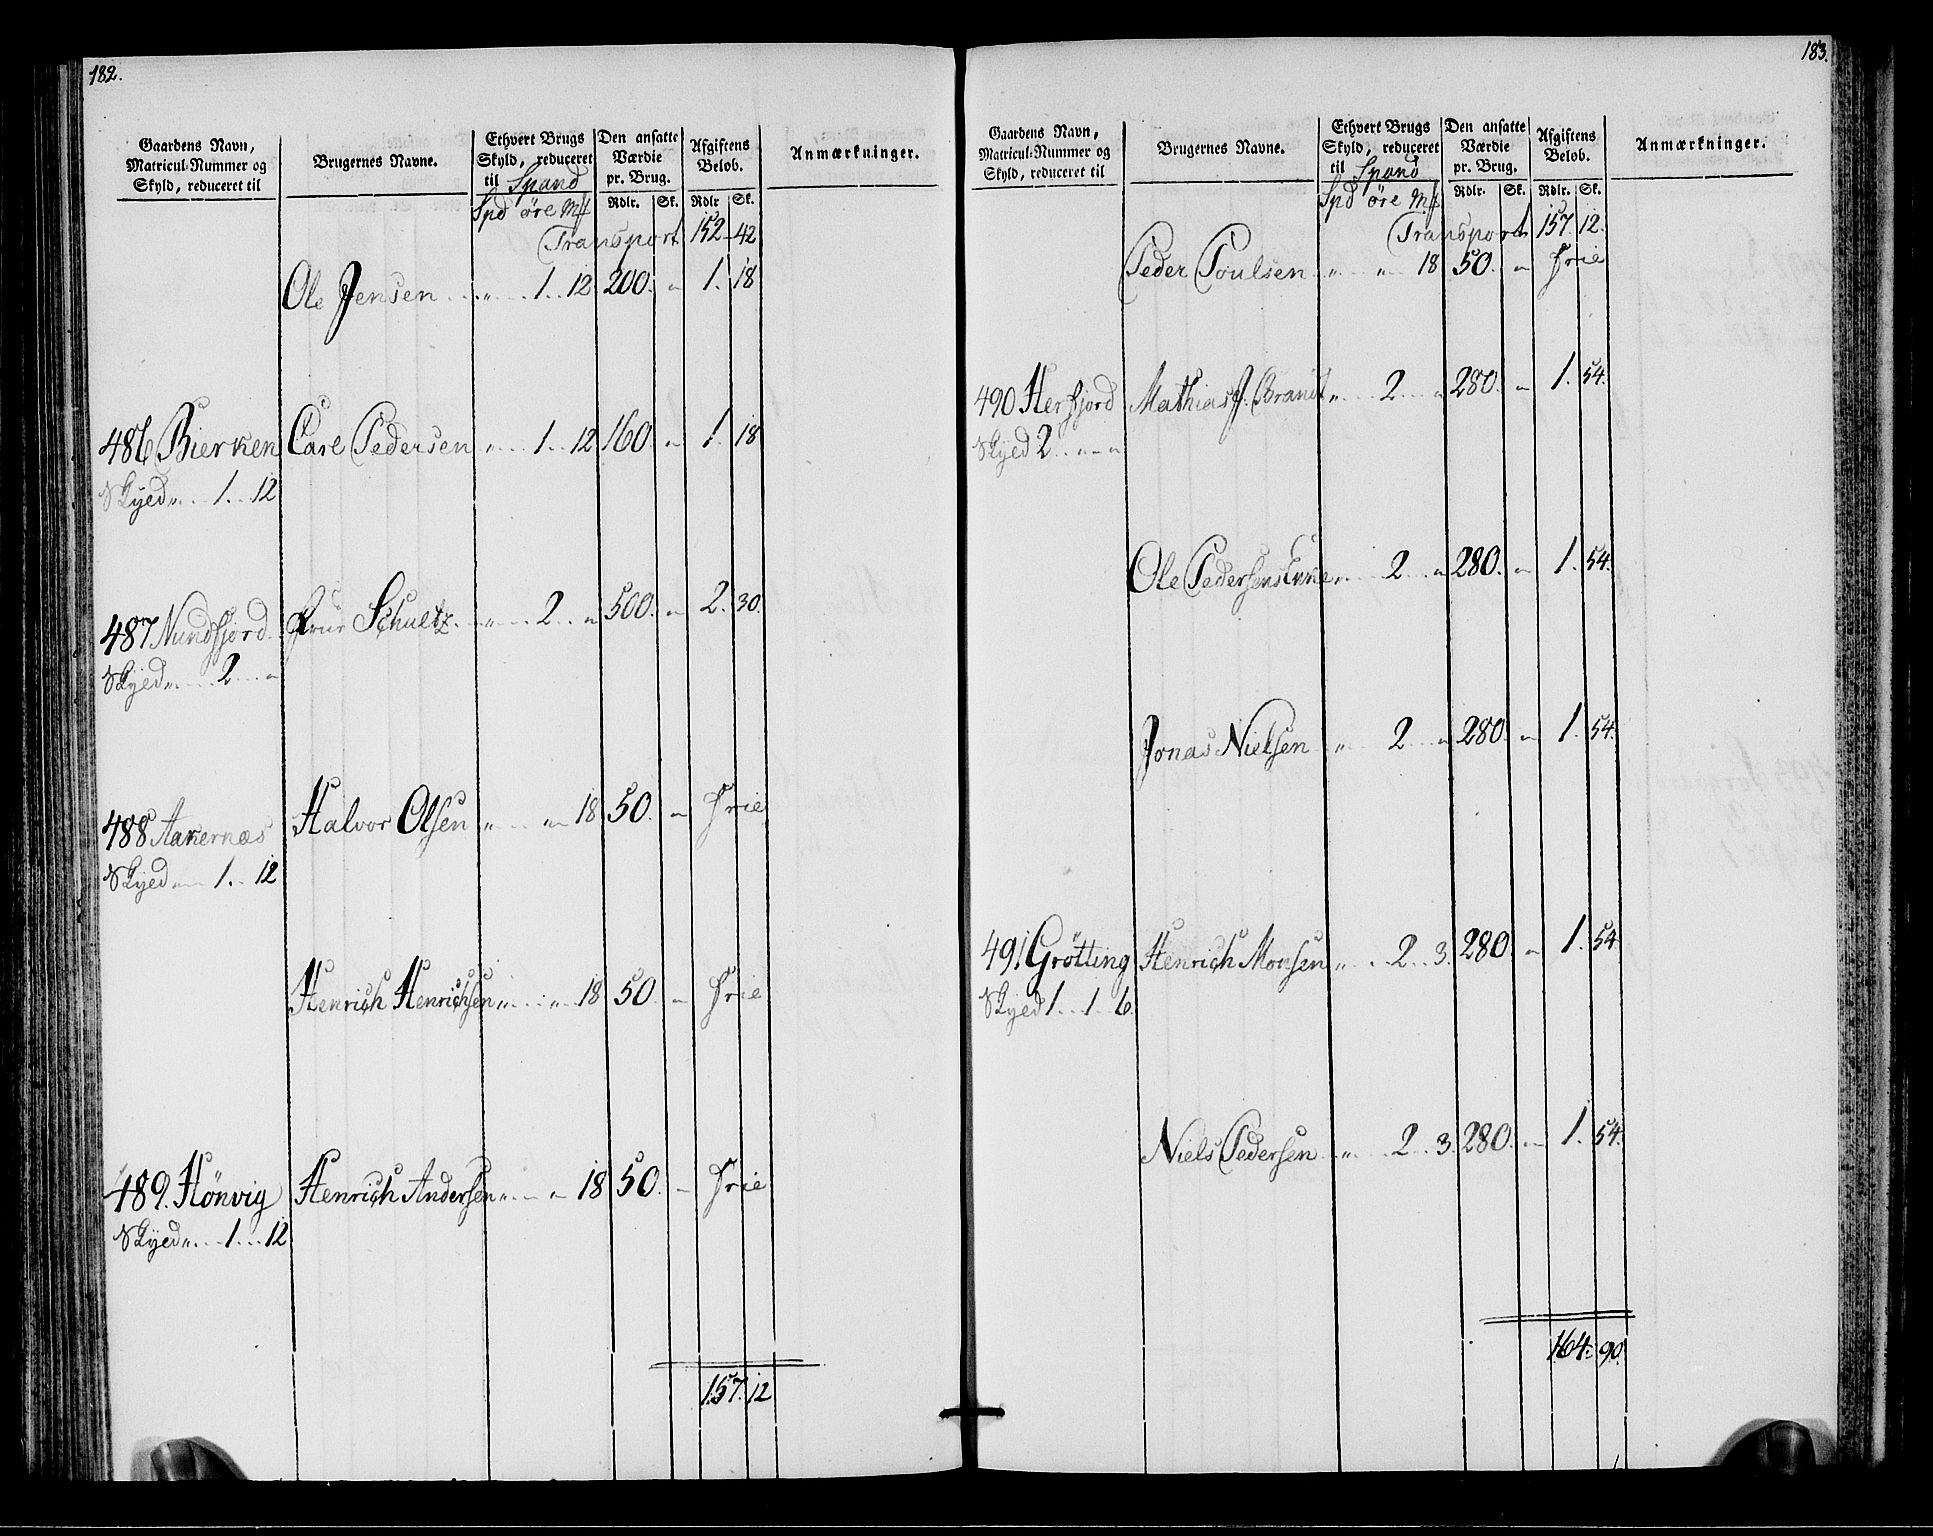 182.
Gaardens Navn, Matricul-Nummer og Skyld, reduceret til
Brugernes Navne.
Ethvert Brugs Skyld, reduceret til Spand
Den ansatte Værdie pr. Brug.
Afgiftens Beløb.
Anmærkninger.
Spd öre Mk Rdlr. Sk. Rdlr Sk.
Transport 152 42
Ole Jensen „ 1 12 200. „ 1. 18
486 Bierken Carl Pedersen „ 1 12 160 „ 1. 18
Skyed „ 1 12
487 Nundfjord Frue Schultz „ 2 „ 500. „ 2. 30.
Skyed „ 2 „
488 Aakernæs Halvor Olsen „ „ 18 50. „ Frie
Skyed „ 1 12
Henrich Henrichsen „ „ 18 50. „ Frie
489. Hönvig Henrich Andersen „ „ 18 50. „ Frie
Skyed „ 1 12
157. 12
183.
Gaardens Navn, Matricul-Nummer og Skyld, reduceret til
Brugernes Navne.
Ethvert Brugs Skyld, reduceret til Spand
Den ansatte Værdie pr. Brug.
Afgiftens Beløb.
Anmærkninger.
Spd öre Mk Rdlr. Sk. Rdlr. Sk.
Transport 157. 12.
Peder Poulsen „ „ 18 50. „ Frie
490 Herfjord Mathias J. Brandt „ 2 „ 280. „ 1. 54.
Skyed 2 „ „
Ole Pedersens Enke „ 2 „ 280. „ 1. 54.
Jonas Nielsen „ 2 „ 280. „ 1. 54.
491. Grötting Henrich Monsen „ 2 3. 280. „ 1. 54.
Skyed 1 1 6.
Niels Pedersen „ 2 3. 280. „ 1. 54.
164. 90.